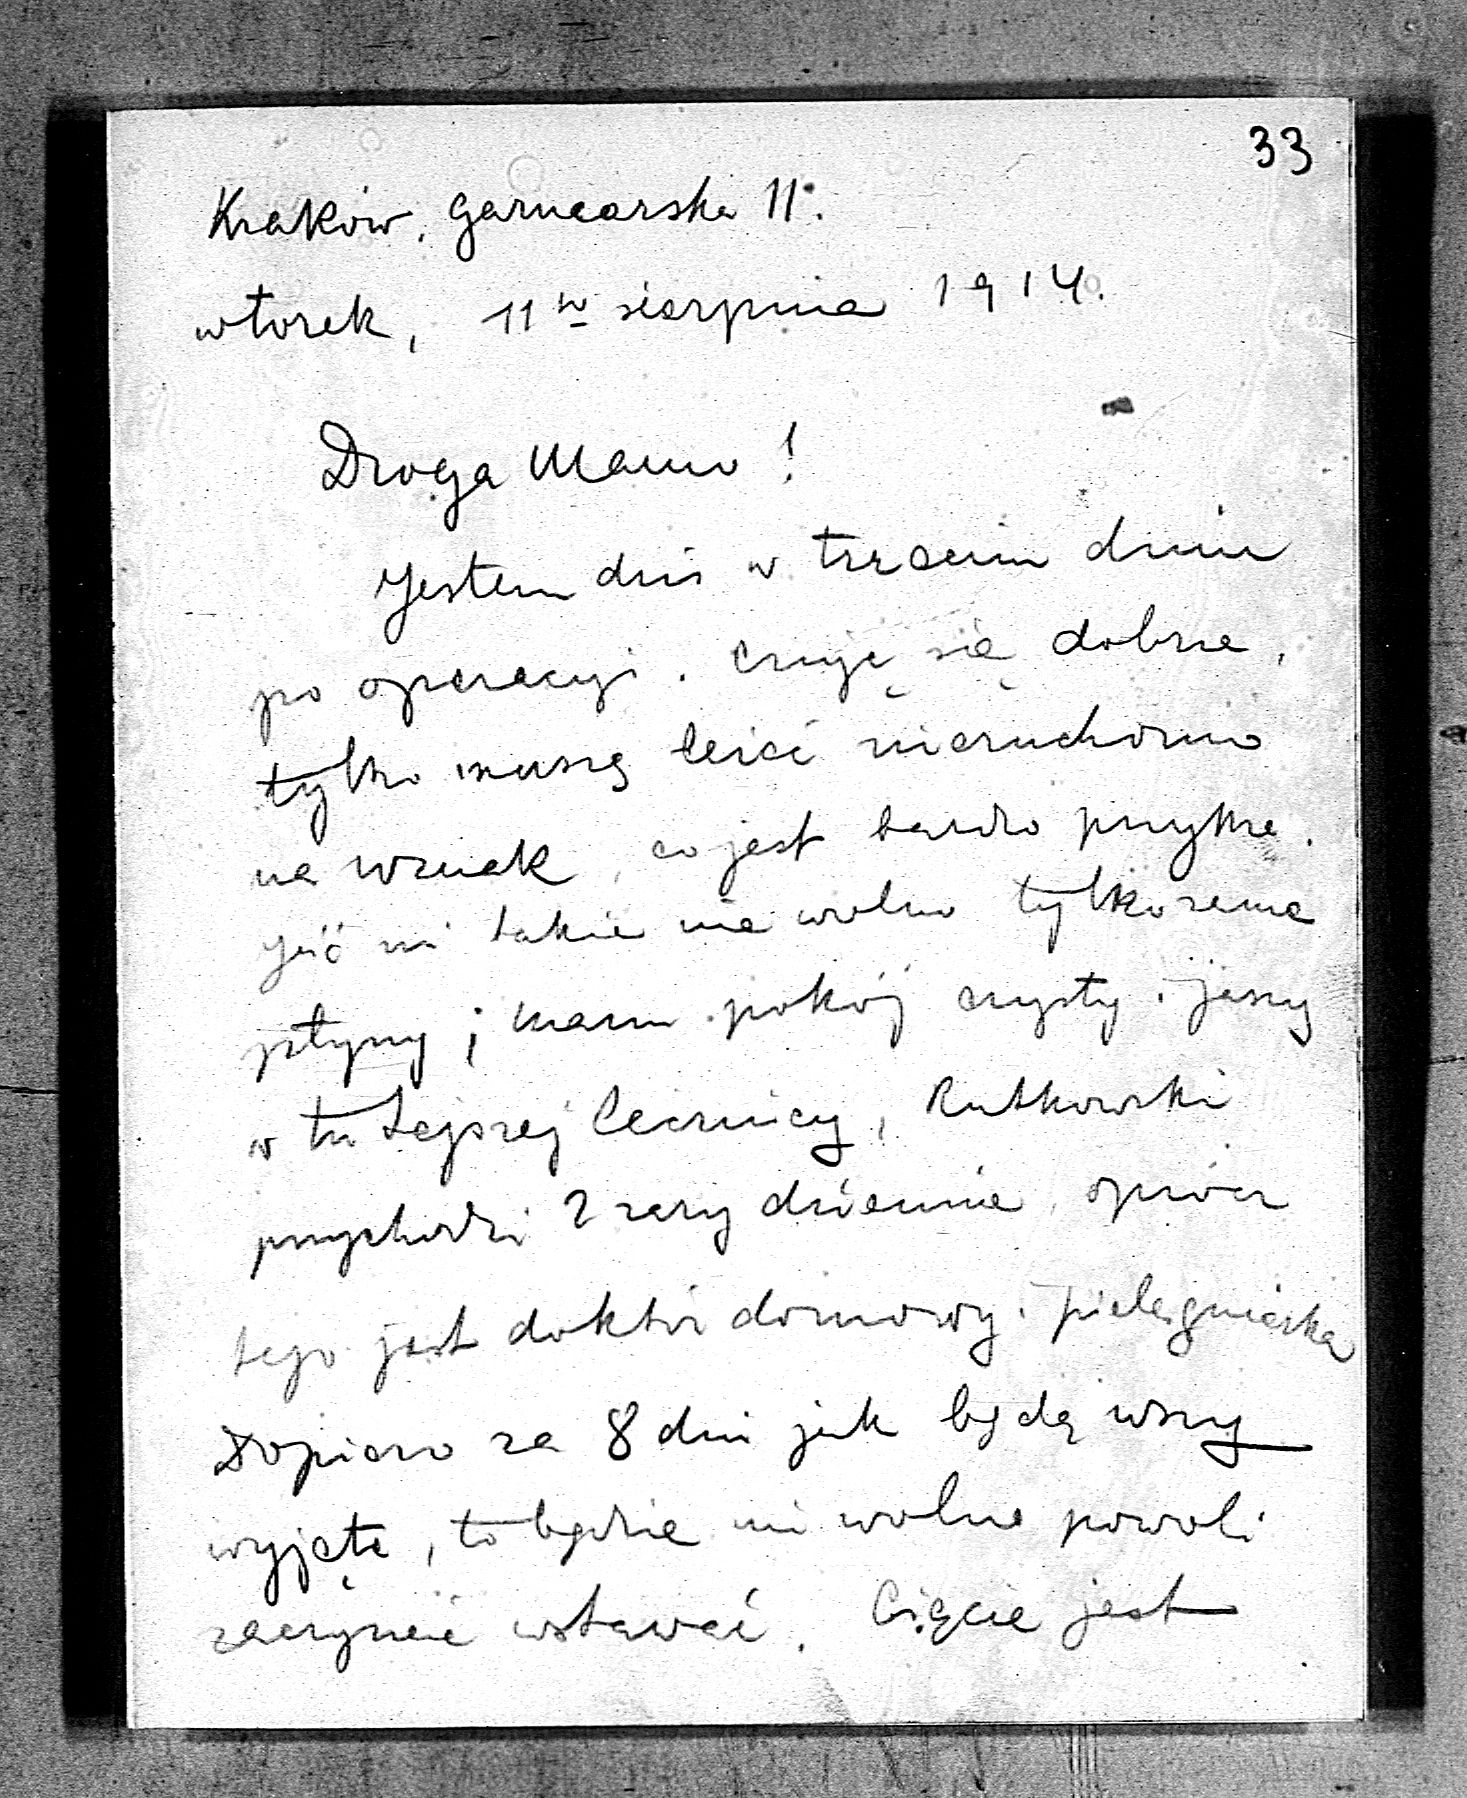 33
Kraków, Garncarska 11.
wtorek, 11go sierpnia 1914.
Droga Mamo!
Jestem dziś w trzecim dniu
po operacyi. Czuję się dobrze,
tylko muszę leżeć nieruchomo
na wznak, co jest bardzo przykre.
Jeść mi także nie wolno tylko same
płyny; mam pokój czysty i jasny
w tutejszej lecznicy, Rutkowski
przychodzi 2 razy dziennie, oprócz
tego jest doktór domowy i pielęgniarka
Dopiero za 8 dni jak będą szwy
wyjęte, to będzie mi wolno powoli
zaczynać wstawać. Cięcie jest